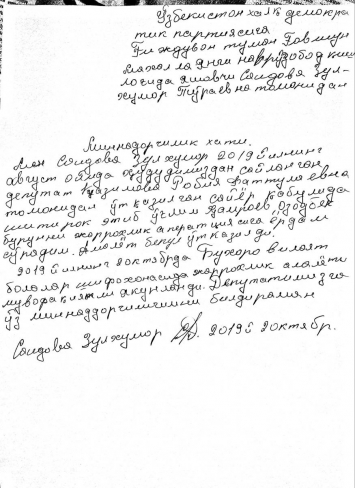 Ўзбекистон халқ демокра
тик партиясига
Ғиждувон туман Ғовшун
махалла днаи наврўзобод киш
логида яшовчи Саидова Зул-
хумор Тўраевна томонидан
Миннадорчилик хати.
Мен Саидова Зулхумор 2019 йилнинг
август ойида худудимиздан сайланган
депутат Казимова Робия Фаттуллаевна
томонидан ўтказилган сайёр кабулида
иштирок этиб ўғлим Озодбек
бурунни жаррохлик аператциясига ёрдам
сурадим. Амалёт бепул ўтказилди.
2019 йилнинг 2 октябрда Бухоро вилоят
болалар шифохонасида жаррохлик амалёти
мувофакиятли якунланди. Депутатимизга
ўз миннадорчилигимни билдираман
Саидова Зулхумор 2019 й 2 октябр.